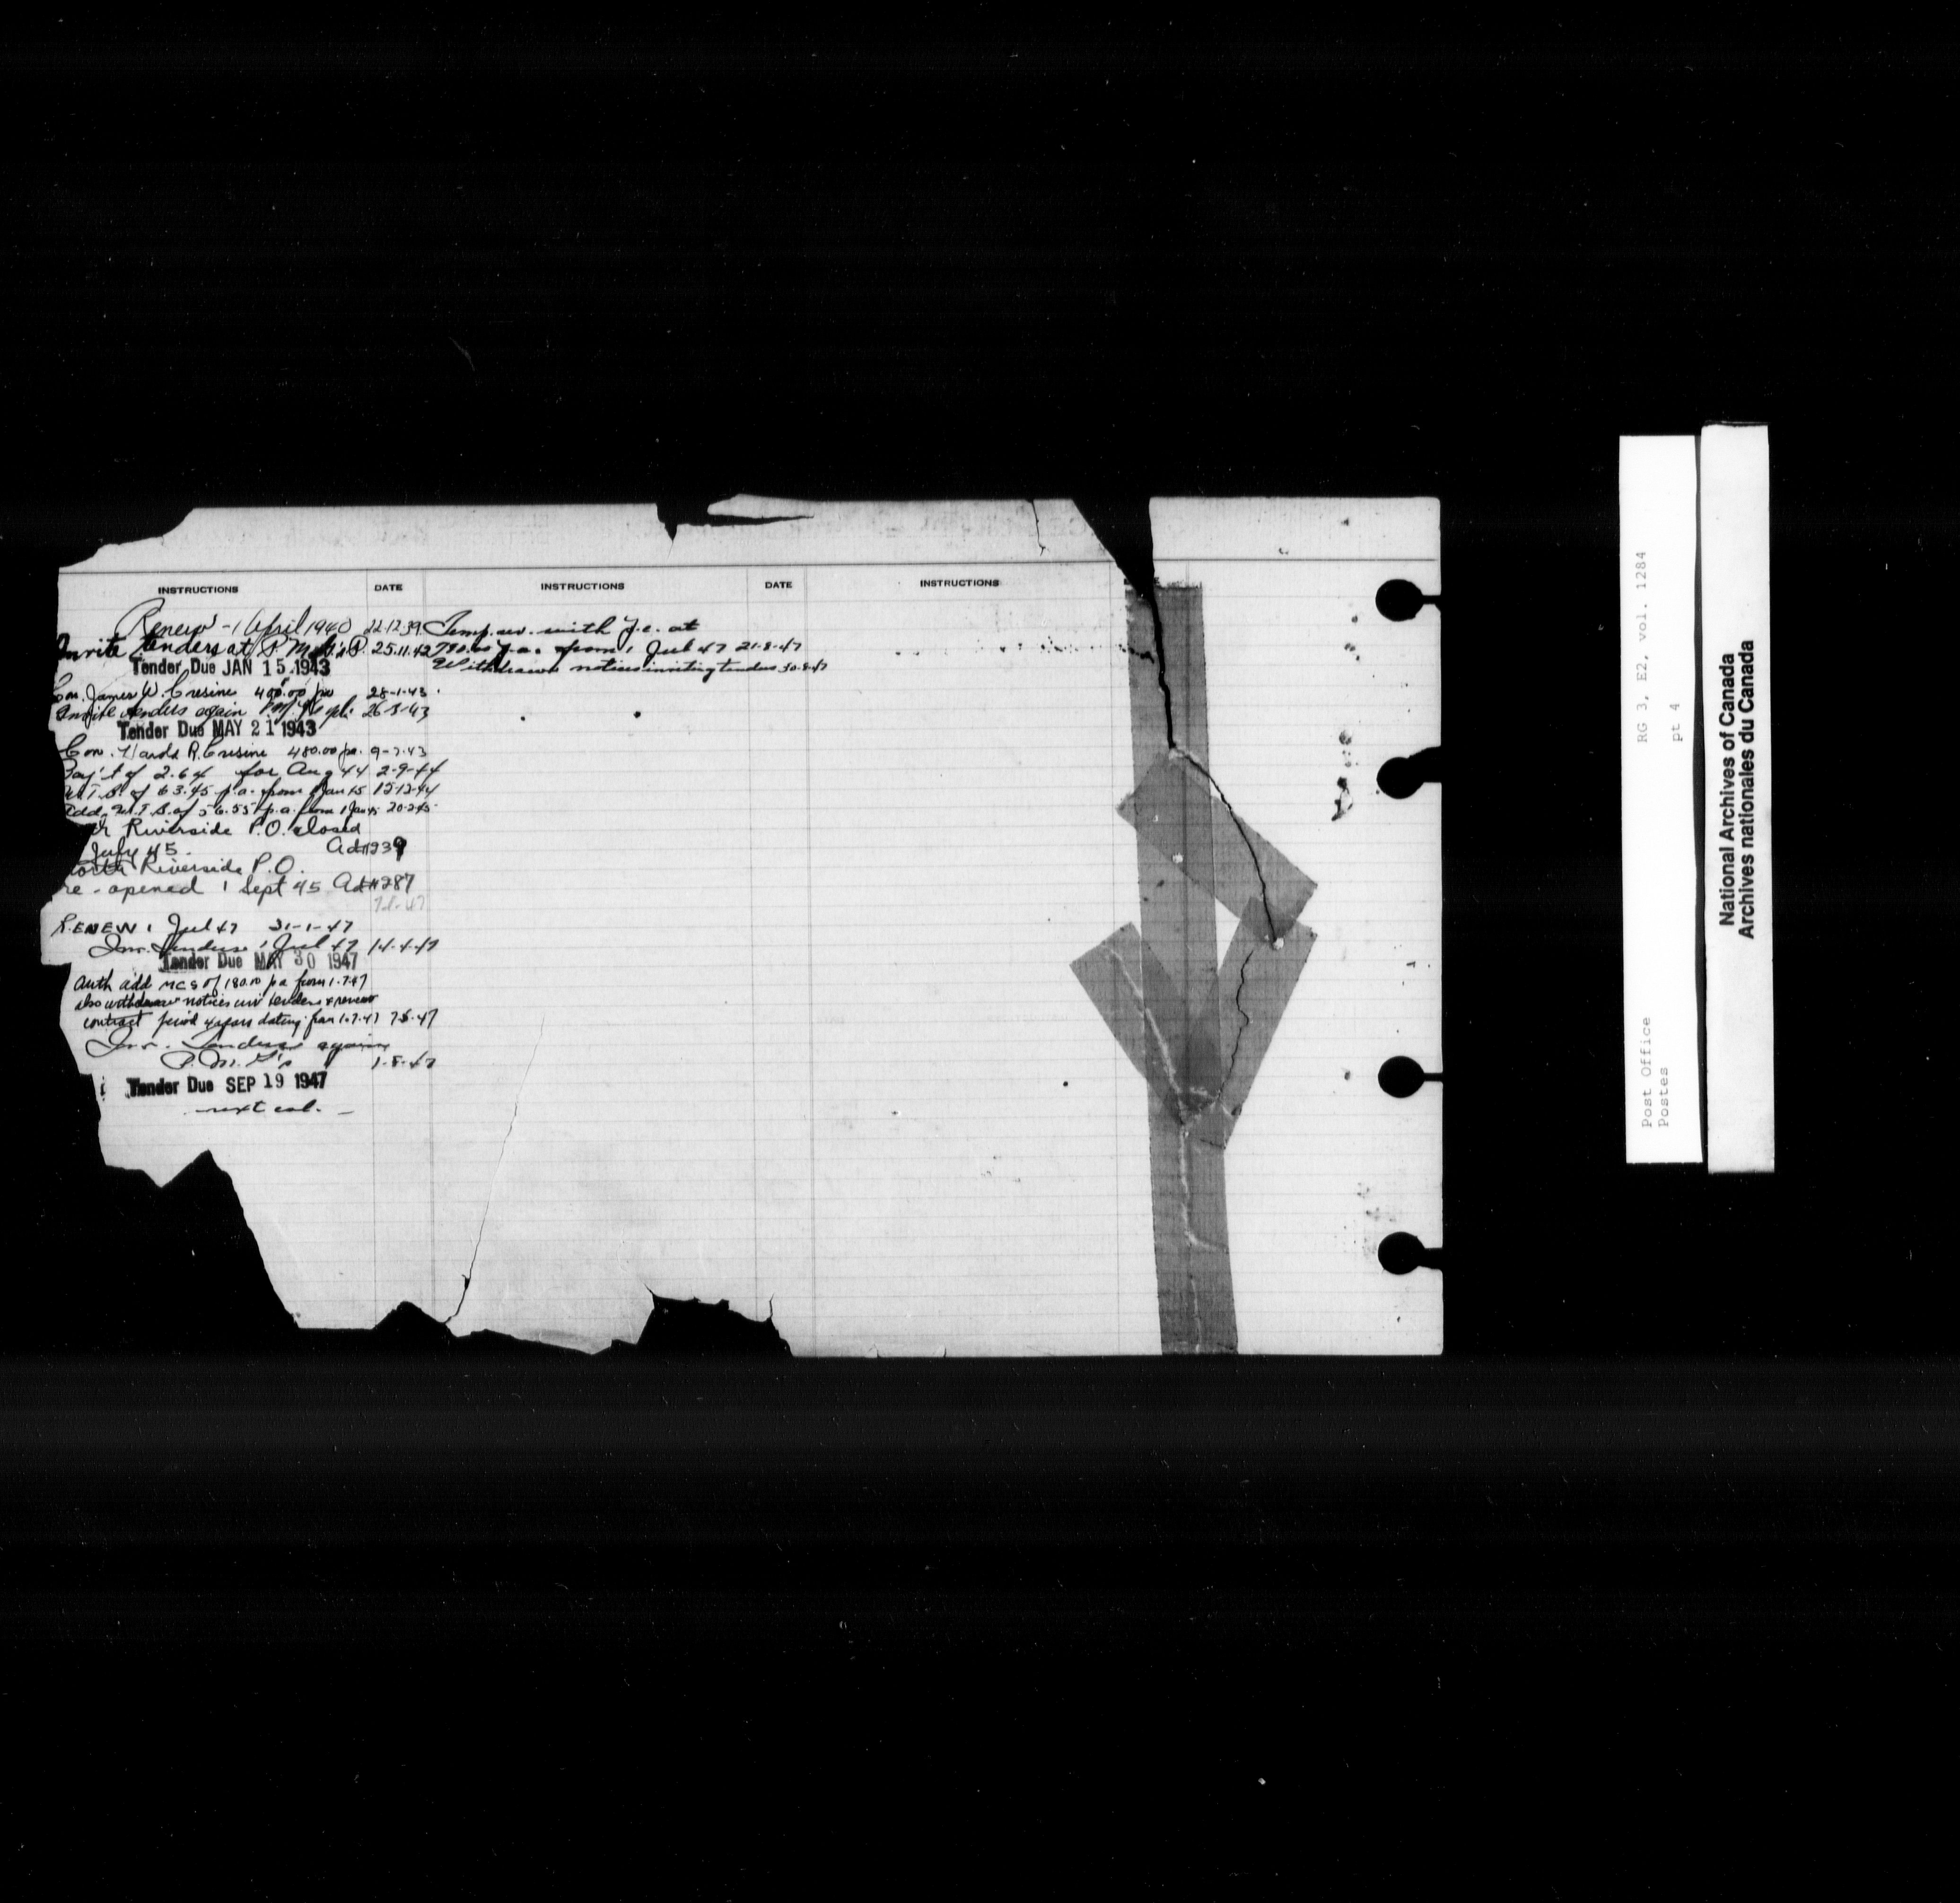 INSTRUCTIONS DATE INSTRUCTIONS DATE INSTRUCTIONS
Renew - 1 April 1940 22.12.39
Invite tenders at 25.11.42
Tender Due JAN 15 1943
Con. James W. Cresine 400.00 pa 28-1-43
Invite tenders again 26-3-43
Tender Due MAY 21 1943
Con. R. Cresine 480.00 pa. 9-7-43
Pay't of 2.64 for Aug 44 2-9-44
W.T.B. of 63.45 p.a. from 1 Jan 45 15-12-44
Add. W.T.B. of 56.55 p.a. from 1 Jan 45 20-2-45
Riverside P.O. closed
July 45. Ad#1239
North Riverside P.O.
re-opened 1 Sept 45 Ad#287
RENEW 1 Jul 47 31-1-47
Inv. Tenders 1 Jul 47 14-4-47
Tender Due MAY 30 1947
Auth add MCS of 180.00 pa from 1.7.47
also withdraw notices inv tenders & renew
contract period 4 years dating from 1.7.47 7.5.47
Inv. Tenders again
P.M. G's 1-8-47
Tender Due SEP 19 1947
next col. -
Temp. ser. with J.C. at
780.00 p.a. from 1 Jul 47 21-8-47
Withdrawn notices inviting tenders 30.8.47
Post Office
Postes
RG 3, E2, vol. 1284
pt 4
National Archives of Canada
Archives nationales du Canada